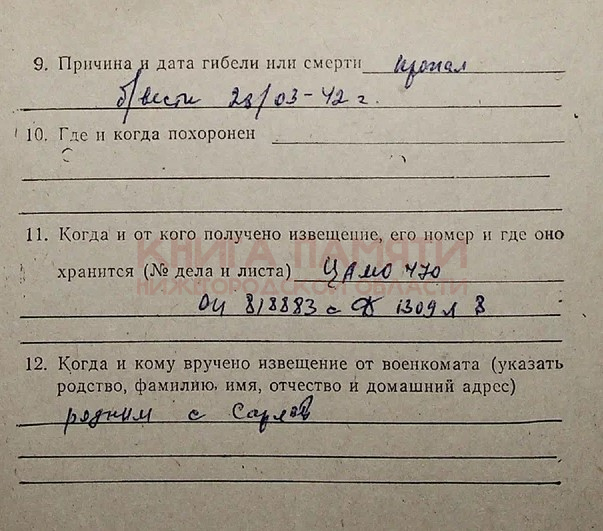 9. Причина и дата гибели или смерти пропал
б/вести 28/03-42 г.
10. Где и когда похоронен
11. Когда и от кого получено извещение, его номер и где оно
КНИГА ПАМЯТИ
хранится (№ дела и листа) ЦАМО 470
НИЖЕГОРОДСКОЙ ОБЛАСТИ
ОП 818883с Д 1309 л 8
12. Когда и кому вручено извещение от военкомата (указать
родство, фамилию, имя, отчество и домашний адрес)
родным с